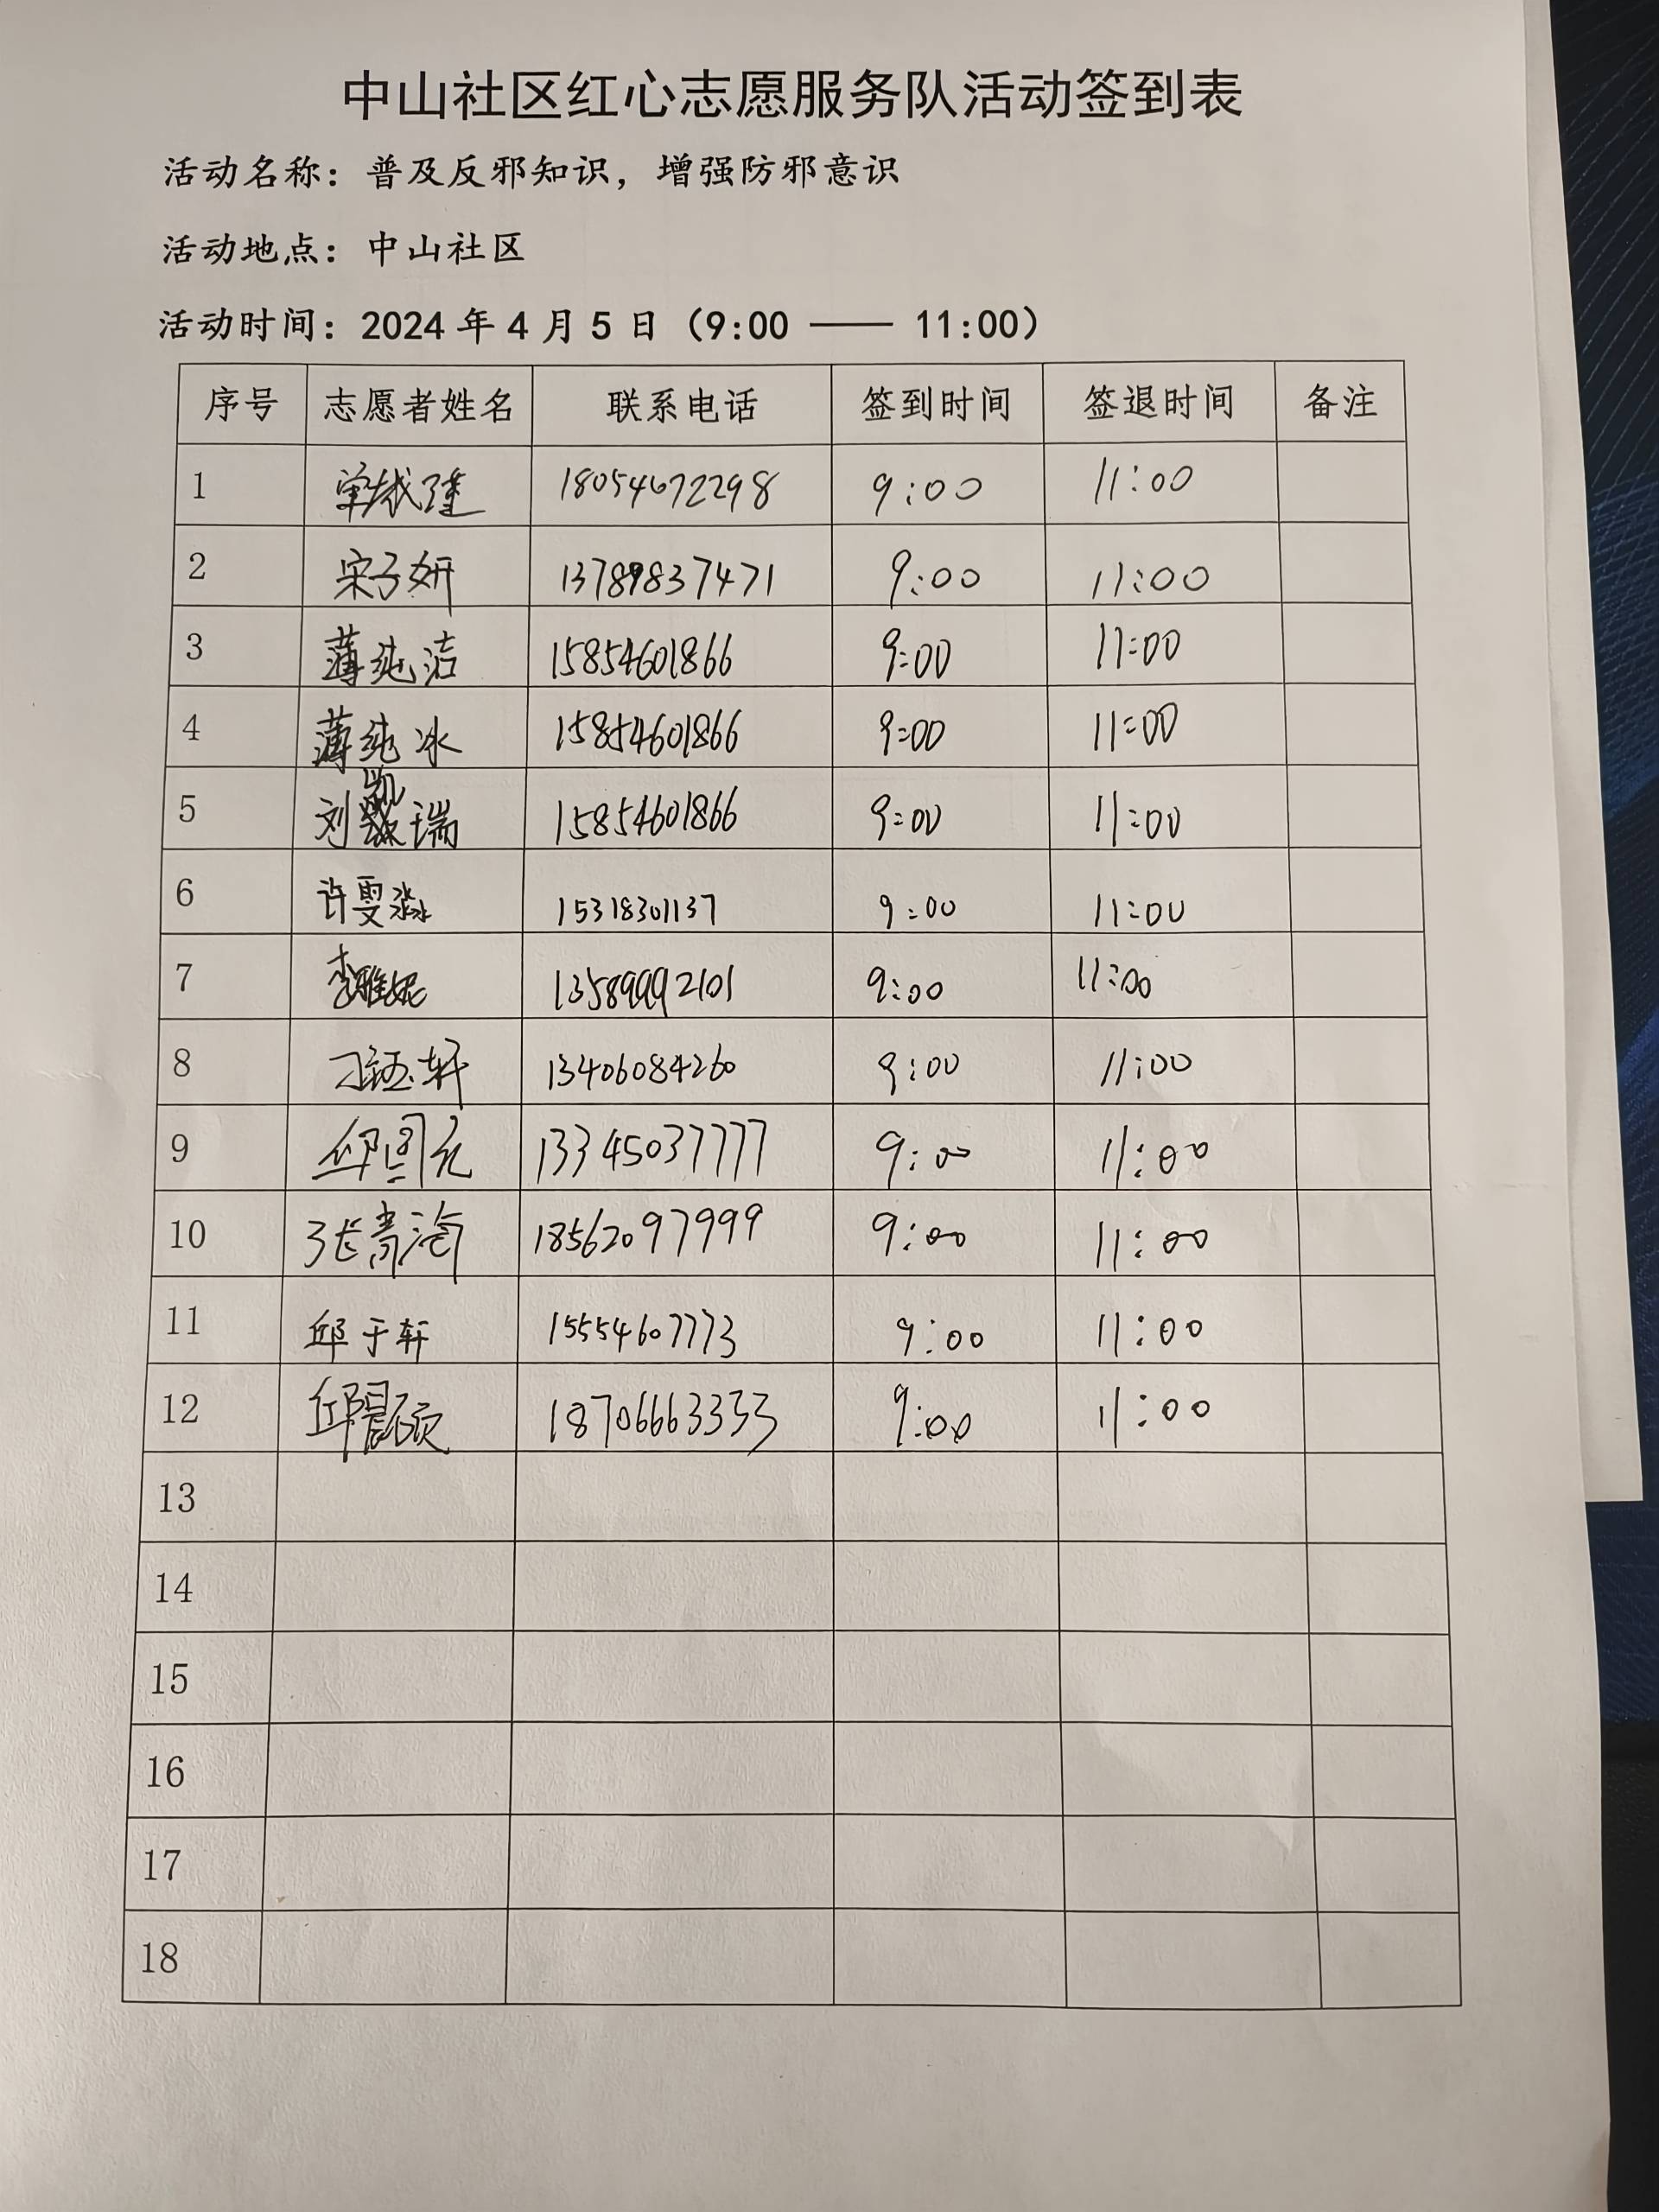 中山社区红心志愿服务队活动签到表
活动名称：普及反邪知识，增强防邪意识
活动地点：中山社区
活动时间：2024年4月5日（9:00 —— 11:00）
序号 志愿者姓名 联系电话 签到时间 签退时间 备注
1 18054672298 9:00 11:00
2 宋子妍 13789837471 9:00 11:00
3 薄纯洁 15854601866 9:00 11:00
4 薄纯冰 15854601866 9:00 11:00
5 刘凯瑞 15854601866 9:00 11:00
6 许雯淼 15318301137 9:00 11:00
7 李雅妮 13589992101 9:00 11:00
8 刁钰轩 13406084260 9:00 11:00
9 13345037777 9:00 11:00
10 张青淘 18562097999 9:00 11:00
11 邱于轩 15554607773 9:00 11:00
12 邱晨硕 18706663333 9:00 11:00
13
14
15
16
17
18